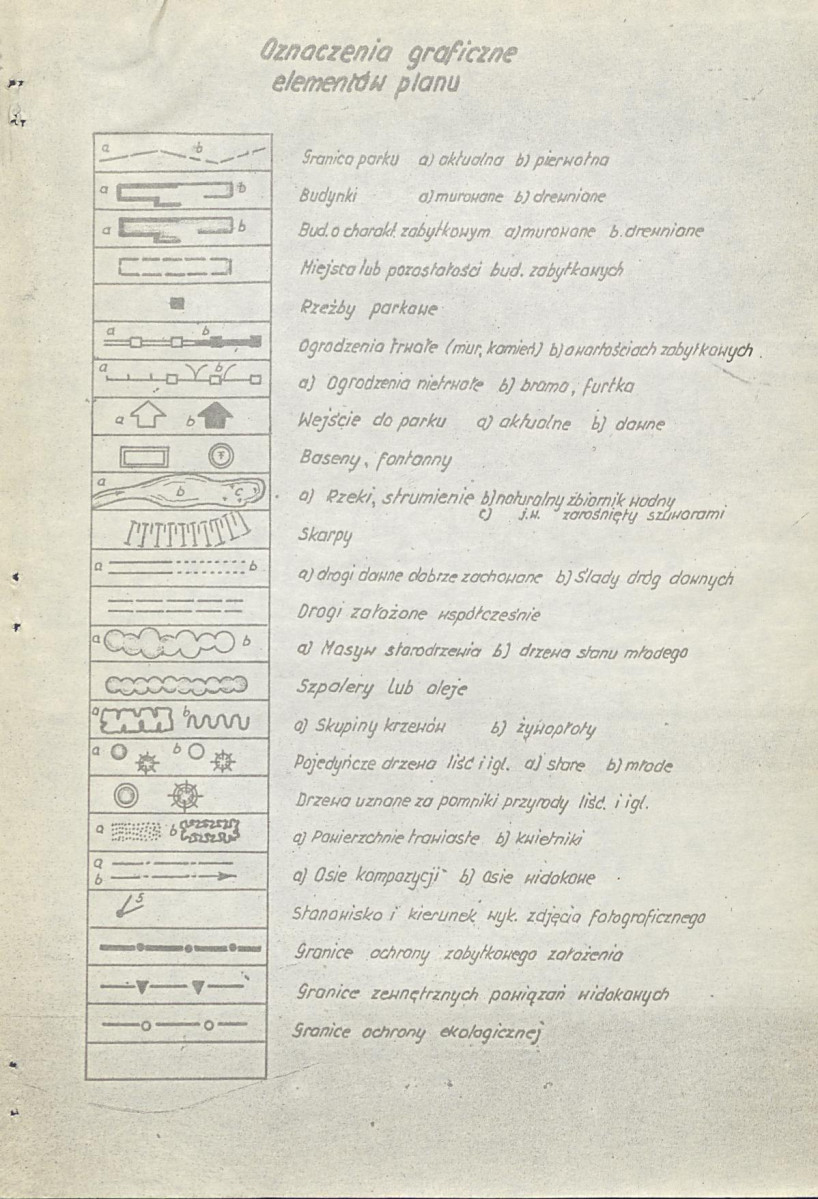 Oznaczenia graficzne
elementów planu
a b
Granica parku a) aktualna b) pierwotna
a b
Budynki a) murowane b) drewniane
a b
Bud. o charakt. zabytkowym a) murowane b. drewniane
Miejsta lub pozostałości bud. zabytkowych
Rzeźby parkowe
a b
Ogrodzenia trwałe (mur, kamień) b) o wartościach zabytkowych.
a b
a) Ogrodzenia nietrwałe b) brama, furtka
a b
Wejście do parku a) aktualne b) dawne
Baseny, fontanny
a b c
a) Rzeki, strumienie b) naturalny zbiornik wodny
c) j.w. zarośnięty szuwarami
Skarpy
a b
a) drogi dawne dobrze zachowane b) Ślady dróg dawnych
Drogi założone współcześnie
a b
a) Masyw starodrzewia b) drzewa stanu młodego
Szpalery lub aleje
a b
a) Skupiny krzewów b) żywopłoty
a b
Pojedyńcze drzewa liść i igl. a) stare b) młode
Drzewa uznane za pomniki przyrody liść. i igl.
a b
a) Powierzchnie trawiaste b) kwietniki
a
b
a) Osie kompozycji b) Osie widokowe
5
Stanowisko i kierunek wyk. zdjęcia fotograficznego
Granice ochrony zabytkowego założenia
Granice zewnętrznych powiązań widokowych
Granice ochrony ekologicznej